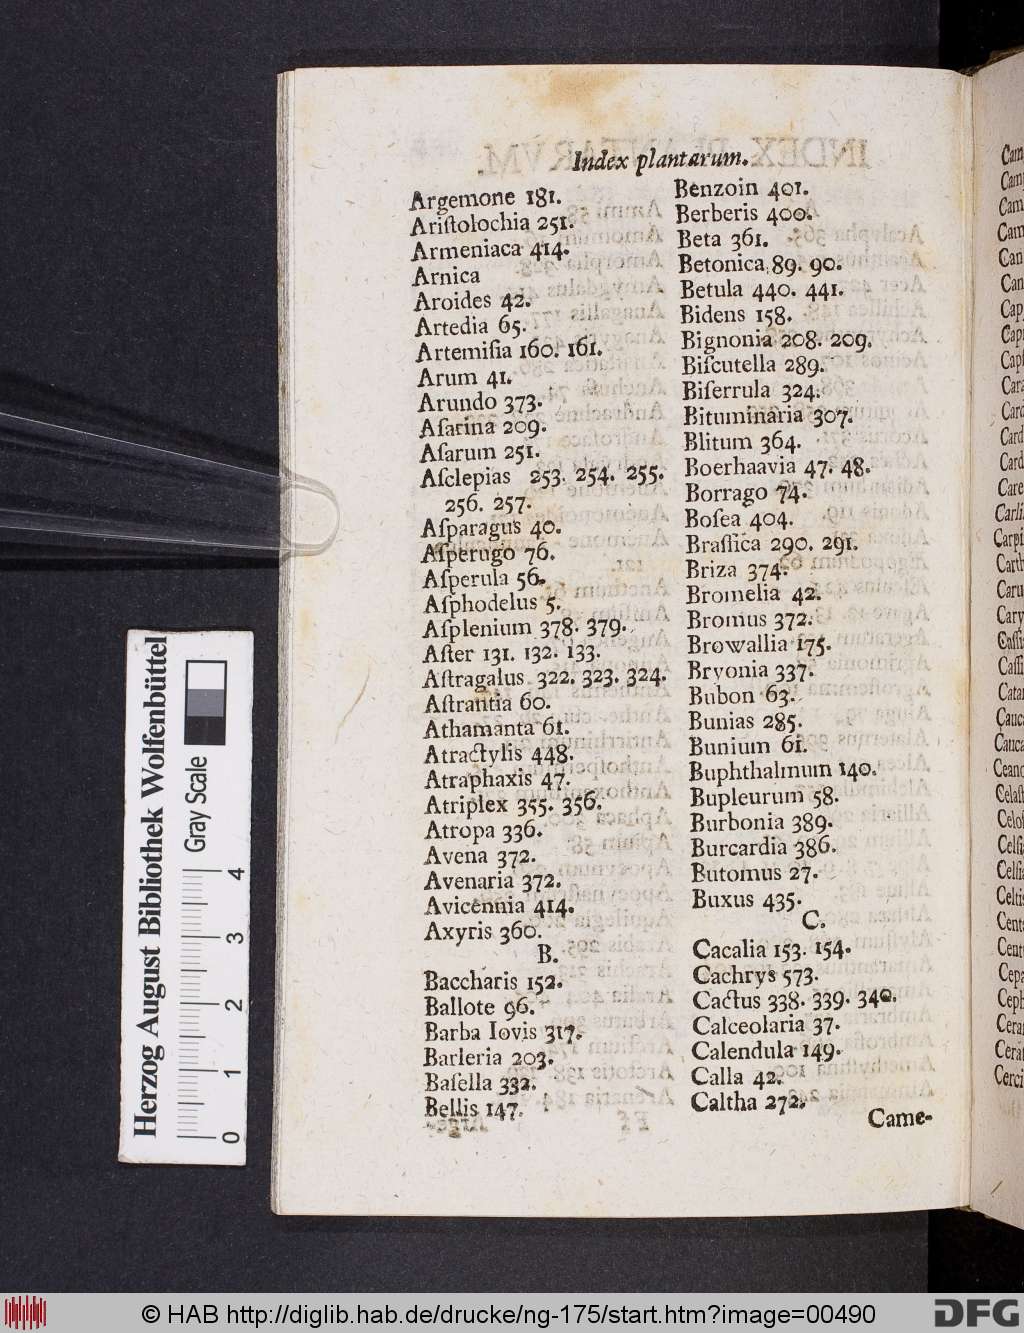 Index plantarum.
Argemone 181.
Ariſtolochia 251.
Armeniaca 414.
Arnica
Aroides 42.
Artedia 65.
Artemiſia 160. 161.
Arum 41.
Arundo 373.
Aſarina 209.
Aſarum 251.
Aſclepias 253. 254. 255.
256. 257.
Aſparagus 40.
Aſperugo 76.
Aſperula 56.
Aſphodelus 5.
Aſplenium 378. 379.
Aſter 131. 132. 133.
Aſtragalus 322. 323. 324.
Aſtrantia 60.
Athamanta 61.
Atractylis 448.
Atraphaxis 47.
Atriplex 355. 356.
Atropa 336.
Avena 372.
Avenaria 372.
Avicennia 414.
Axyris 360.
B.
Baccharis 152.
Ballote 96.
Barba Iovis 317.
Barleria 203.
Baſella 332.
Bellis 147.
Benzoin 401.
Berberis 400.
Beta 361.
Betonica 89. 90.
Betula 440. 441.
Bidens 158.
Bignonia 208. 209.
Biſcutella 289.
Biſerrula 324.
Bituminaria 307.
Blitum 364.
Boerhaavia 47. 48.
Borrago 74.
Boſea 404.
Braſſica 290. 291.
Briza 374.
Bromelia 42.
Bromus 372.
Browallia 175.
Bryonia 337.
Bubon 63.
Bunias 285.
Bunium 61.
Buphthalmum 140.
Bupleurum 58.
Burbonia 389.
Burcardia 386.
Butomus 27.
Buxus 435.
C.
Cacalia 153. 154.
Cachrys 573.
Cactus 338. 339. 340.
Calceolaria 37.
Calendula 149.
Calla 42.
Caltha 272.
Came-
Herzog August Bibliothek Wolfenbüttel
Gray Scale
0 1 2 3 4
© HAB http://diglib.hab.de/drucke/ng-175/start.htm?image=00490
DFG